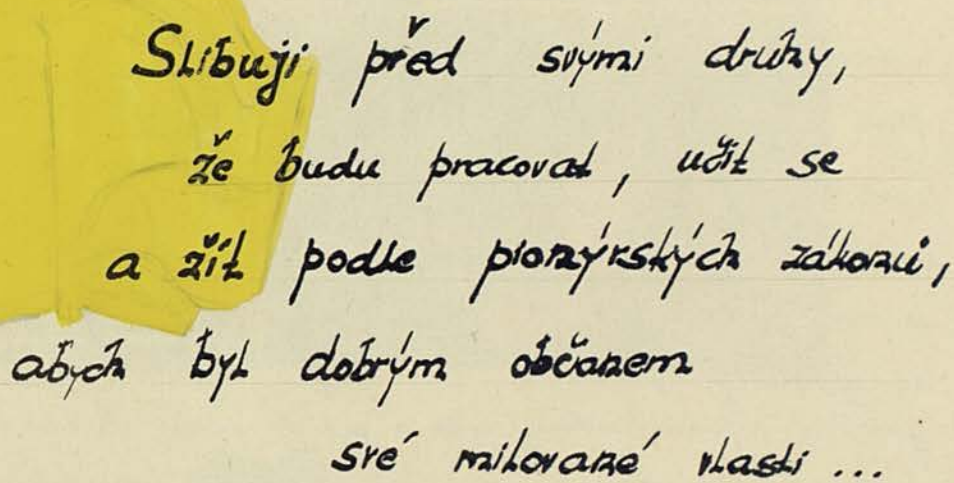 Slibuji před svými druhy,
že budu pracovat, učit se
a žít podle pionýrských zákonů,
abych byl dobrým občanem
své milované vlasti ...